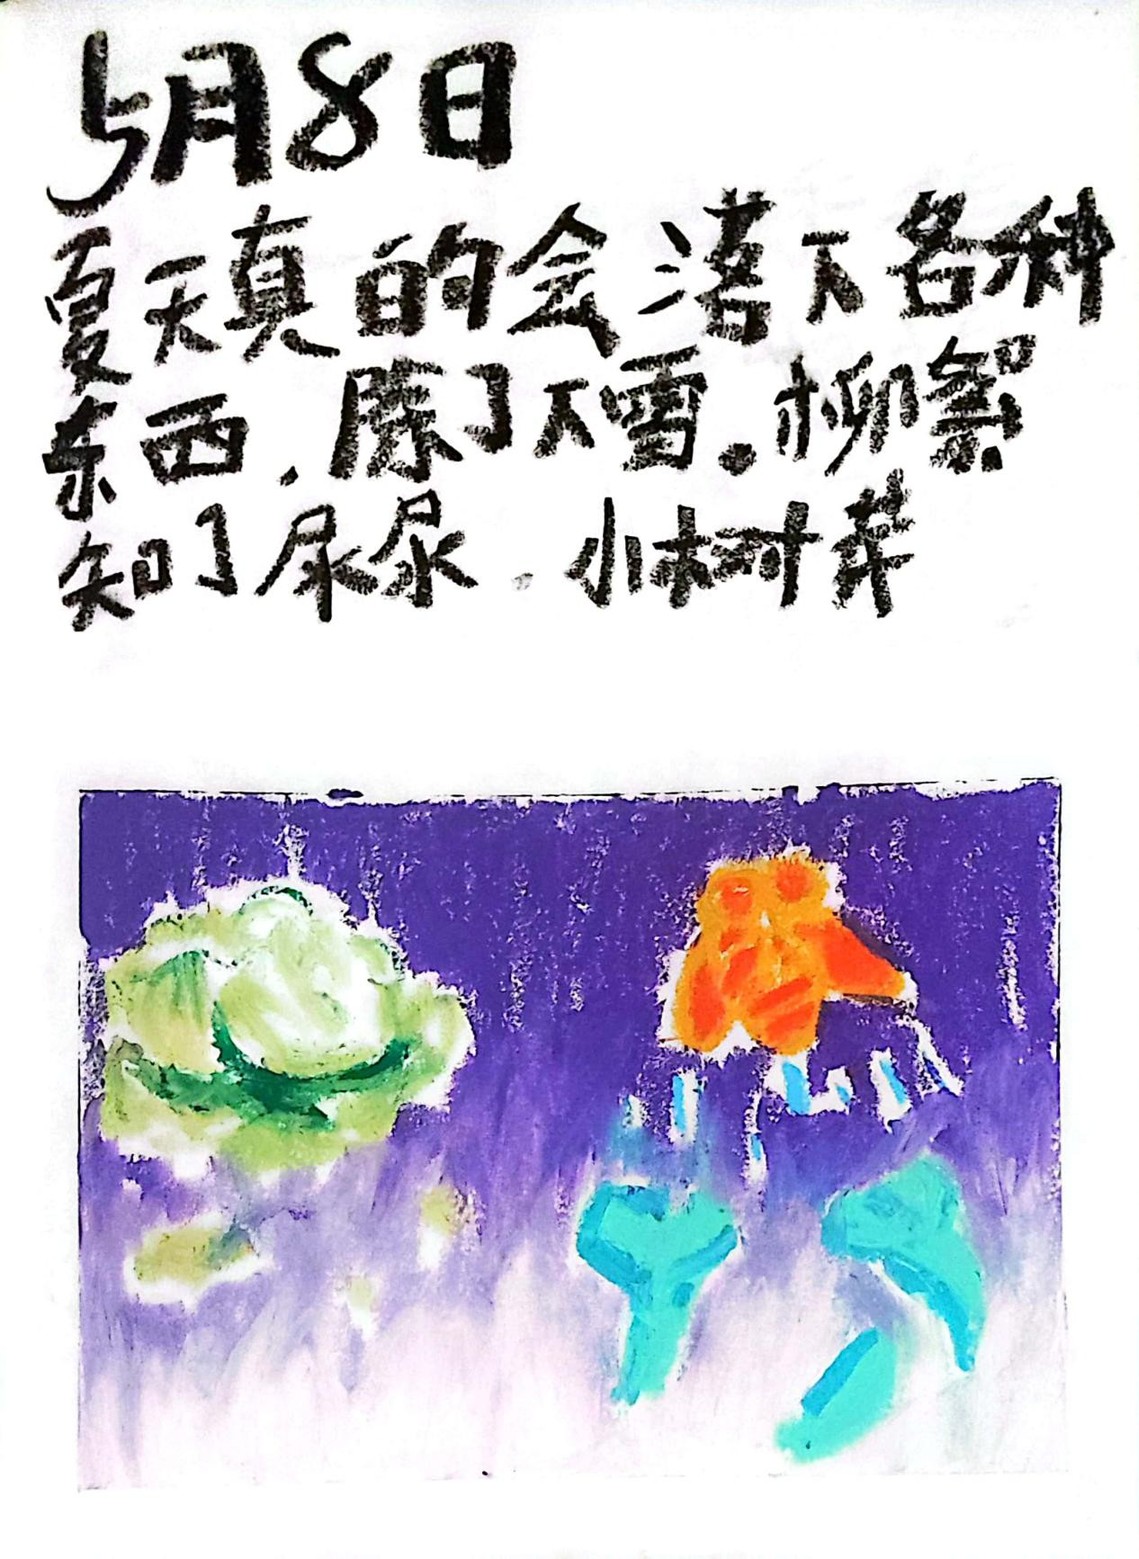 5月8日
夏天真的会落下各种
东西，除了下雪。柳絮
知了尿尿．小树芽